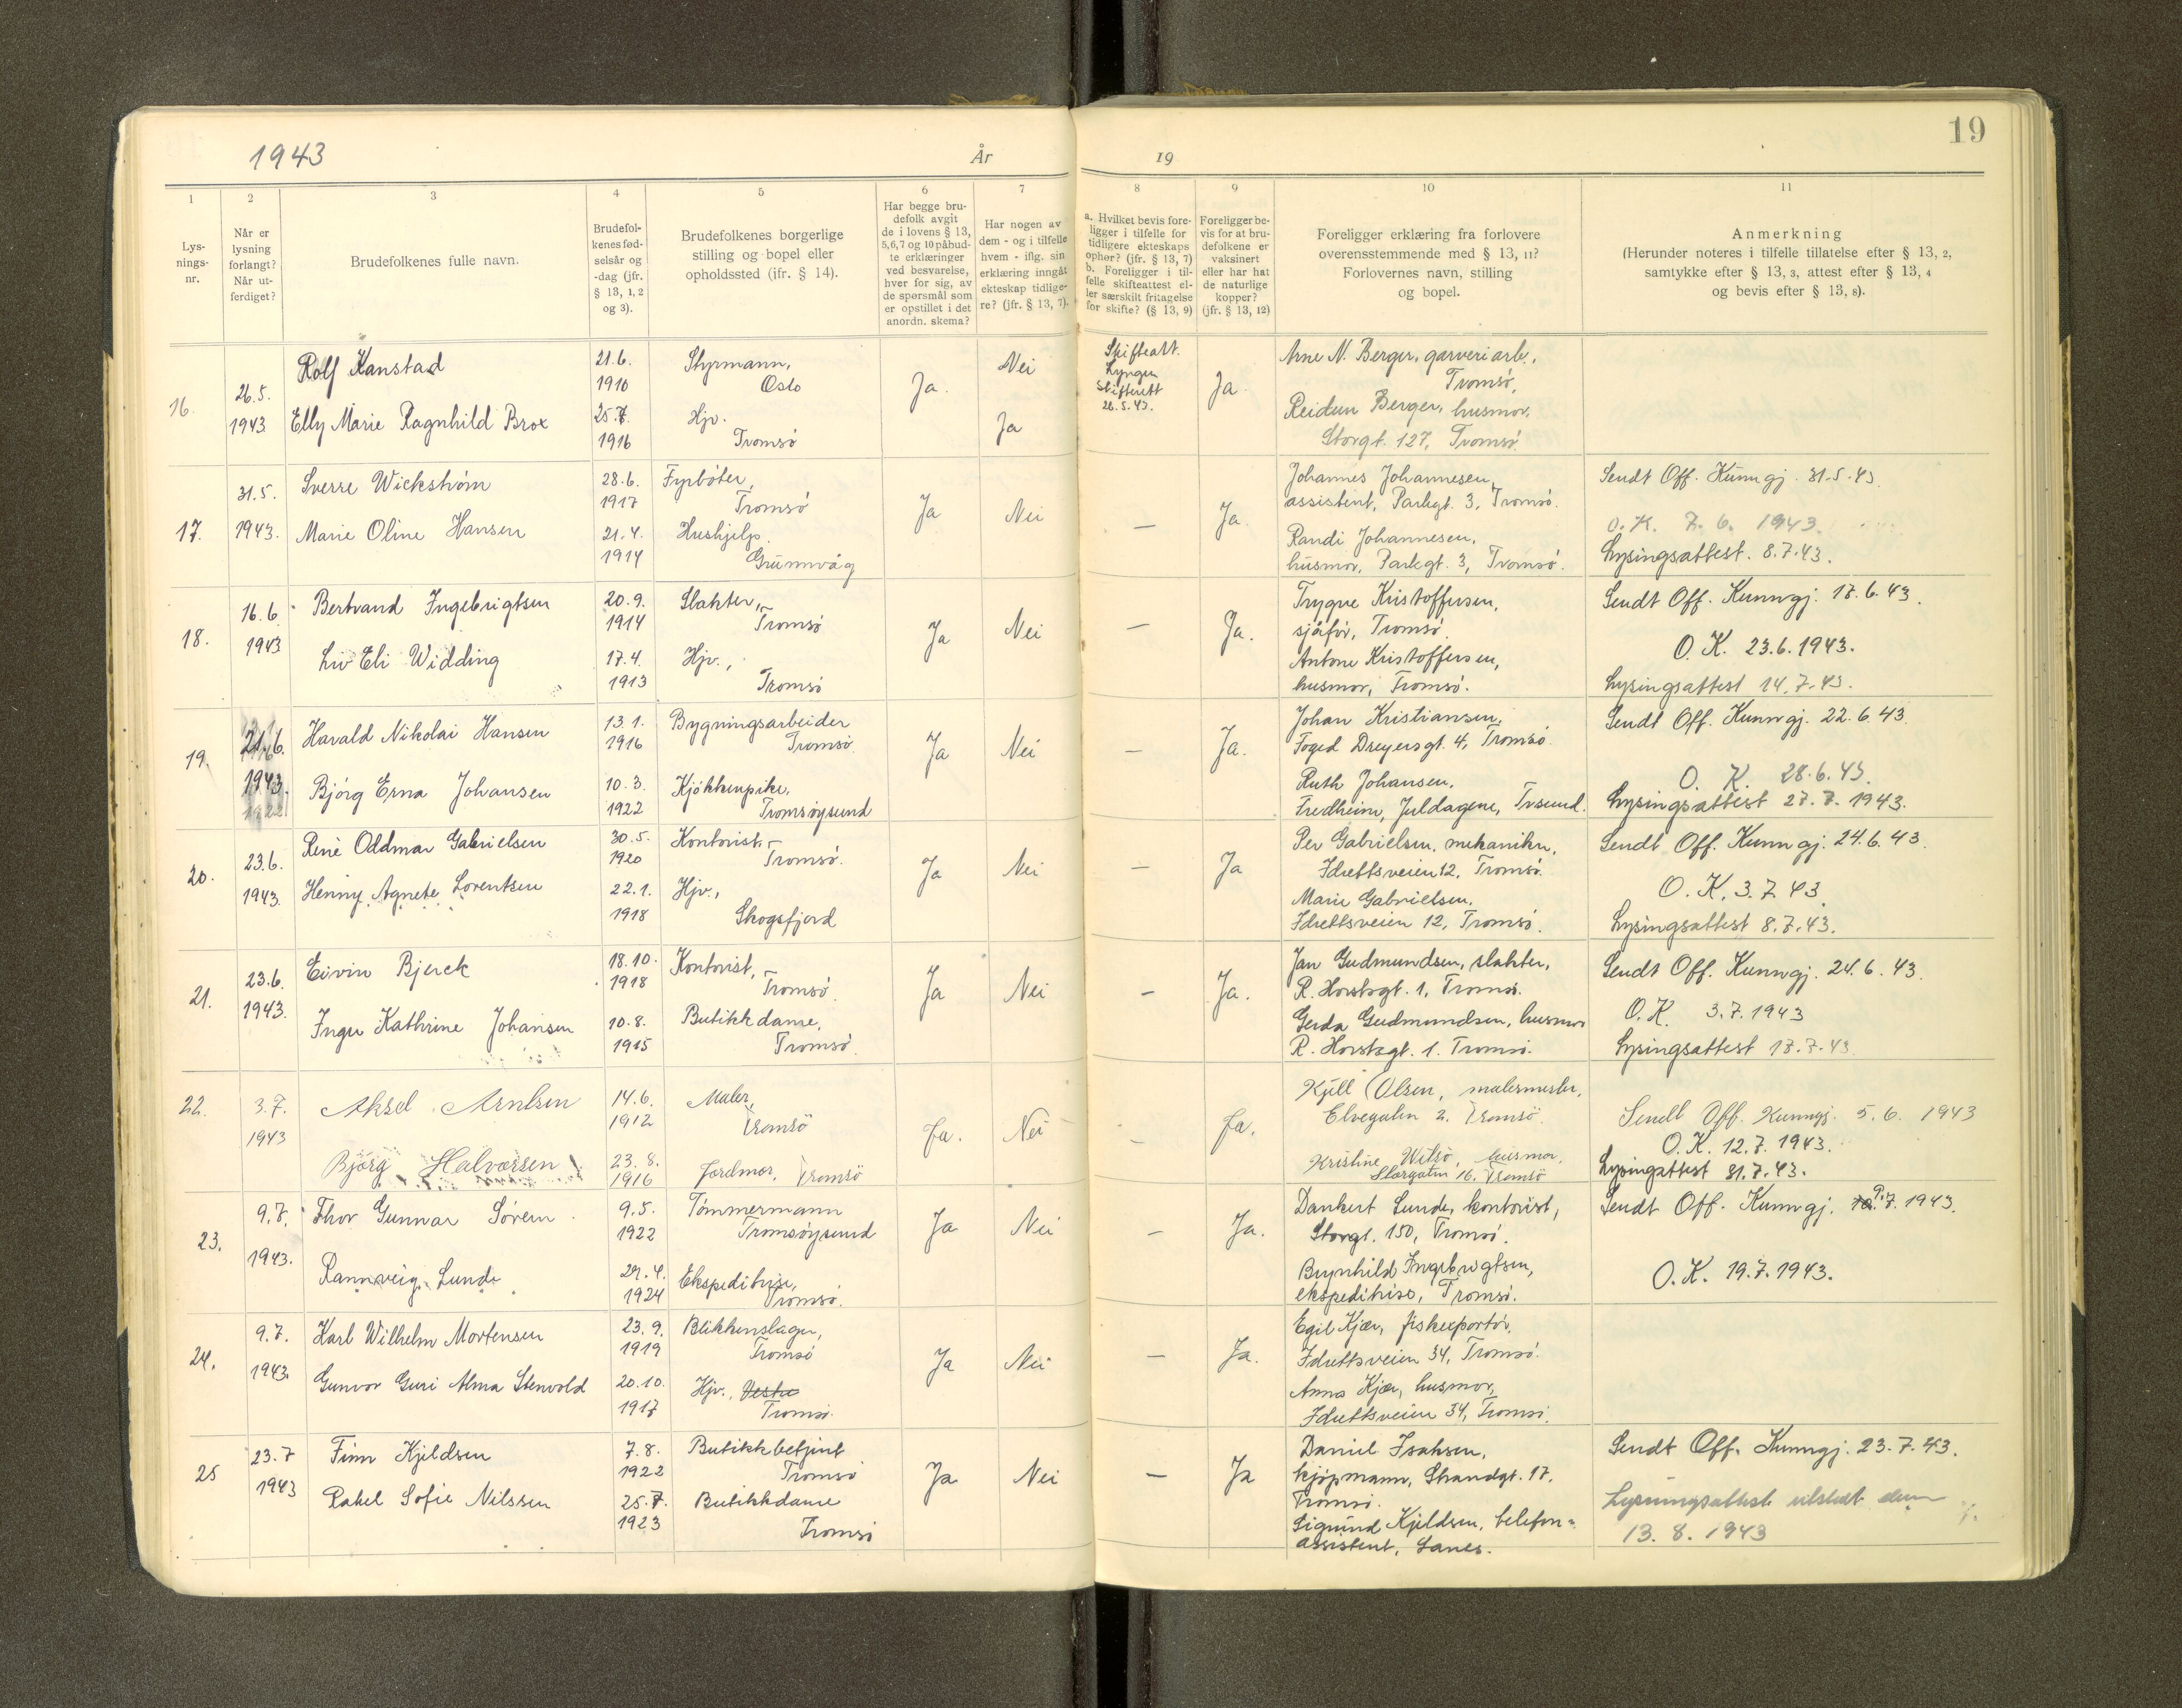 1943
År
19
19
1
2
3
4
5
6
7
8
9
10
11
Lys-
nings-
nr.
Når er
lysning
forlangt?
Når ut-
ferdiget?
Brudefolkenes fulle navn.
Brudefol-
kenes fød-
selsår og
-dag (jfr.
§ 13, 1, 2
og 3).
Brudefolkenes borgerlige
stilling og bopel eller
opholdssted (ifr. § 14).
Har begge bru-
defolk avgit
de i lovens § 13,
5,6,7 og 10 påbud-
te erklæringer
ved besvarelse,
hver for sig, av
de spørsmål som
er opstillet i det
anordn. skema?
Har nogen av
dem - og i tilfelle
hvem - iflg. sin
erklæring inngåt
ekteskap tidlige-
re? (jfr. § 13, 7).
a. Hvilket bevis fore-
ligger i tilfelle for
tidligere ekteskaps
ophør? (jfr. § 13, 7)
b. Foreligger i til-
felle skifteattest el-
ler særskilt fritagelse
for skifte? (§ 13, 9)
Foreligger be-
vis for at bru-
defolkene er
vaksinert
eller har hat
de naturlige
kopper?
(jfr. § 13, 12)
Foreligger erklæring fra forlovere
overensstemmende med § 13, 11?
Forlovernes navn, stilling
og bopel.
Anmerkning
(Herunder noteres i tilfelle tillatelse efter § 13, 2,
samtykke efter § 13, 3, attest efter § 13, 4
og bevis efter § 13, 8).
16.
26.5.
1943
Rolf Kanstad
21.6.
1910
Styrmann,
Oslo
Elly Marie Ragnhild Brox
25.7.
1916
Hjv.
Tromsø
Ja.
Nei
Ja
Skifteatt.
Lyngen
Skifterett
26.5.43.
Ja.
Arne N. Berger, garveriarb.,
Tromsø,
Reidun Berger, husmor,
Storgt. 127, Tromsø
17.
31.5.
1943.
Sverre Wickstrøm
28.6.
1917
Fyrbøter,
Tromsø
Marie Oline Hansen
21.4.
1914
Hushjelp.
Grunnvåg
Ja
Nei
—
Ja.
Johannes Johannesen,
assistent, Parkgt. 3, Tromsø.
Randi Johannesen,
husmor, Parkgt. 3, Tromsø.
Sendt Off. Kunngj. 31.5.43.
O.K. 7.6. 1943.
Lysingsattest. 8.7.43.
18.
16.6.
1943
Bertrand Ingebrigtsen
20.9.
1914
Slakter,
Tromsø
Liv Eli Widding
17.4.
1913
Hjv.,
Tromsø
Ja
Nei
—
Ja.
Trygve Kristoffersen,
sjåfør, Tromsø.
Antone Kristoffersen,
husmor, Tromsø.
Sendt Off. Kunngj. 17.6.43.
O.K. 23.6.1943.
Lysingsattest 14.7.43.
19.
21.6.
1943.
Harald Nikolai Hansen
13.1.
1916
Bygningsarbeider
Tromsø.
Bjørg Erna Johansen
10.3.
1922
Kjøkkenpike,
Tromsøysund
Ja
Nei
—
Ja.
Johan Kristiansen,
Foged Dreyersgt. 4, Tromsø.
Ruth Johansen,
Fredheim, Juldagene, Trsund.
Sendt Off. Kunngj. 22.6.43.
O. K. 28.6.43.
Lysingsattest 27.7.1943.
20.
23.6.
1943.
Renè Oddmar Gabrielsen
30.5.
1920
Kontorist,
Tromsø.
Henny Agnete Lorentsen
22.1.
1918
Hjv.,
Skogsfjord
Ja
Nei
—
Ja
Per Gabrielsen, mekaniker,
Idrettsveien 12, Tromsø.
Marie Gabrielsen,
Idrettsveien 12, Tromsø.
Sendt Off. Kunngj. 24.6.43.
O.K. 3.7.43.
Lysingsattest 8.7.43.
21.
23.6.
1943.
Eivin Bjerck
18.10.
1918
Kontorist,
Tromsø.
Inger Kathrine Johansen
10.8.
1915
Butikkdame,
Tromsø.
Ja
Nei
—
Ja.
Jan Gudmundsen, slakter,
R. Horstsgt. 1, Tromsø.
Gerda Gudmundsen, husmor
R. Horstsgt. 1. Tromsø.
Sendt Off. Kunngj. 24.6.43.
O.K. 3.7.1943
Lysingsattest 17.7.43.
22.
3.7.
1943
Aksel Arntsen
14.6.
1912
Maler,
Tromsø
Bjørg Halvorsen
23.8.
1916
Jordmor, Tromsø
Ja.
Nei
—
Ja.
Kjell Olsen, malermester,
Elvegaten 2. Tromsø.
Kristine Witsø, husmor,
Storgaten 16. Tromsø
Sendt Off. Kunngj. 5.6. 1943
O.K. 12.7.1943.
Lysingattest 31.7.43.
23.
9.7.
1943.
Thor Gunnar Søren
9.5.
1922
Tømmermann
Tromsøysund
Rannveig Lunde
29.4.
1924
Ekspeditrise,
Tromsø.
Ja
Nei
—
Ja.
Dankert Lunde, kontorist,
Storgt. 150, Tromsø.
Brynhild Ingebrigtsen,
ekspeditrise, Tromsø.
Sendt Off. Kunngj. 9.7.1943.
O.K. 19.7.1943.
24.
9.7.
1943.
Karl Wilhelm Mortensen
23.9.
1919
Blikkenslager,
Tromsø
Gunvor Guri Alma Stenvold
20.10.
1917
Hjv., Vestre
Tromsø.
Ja
Nei
—
Ja.
Egil Kjær, fiskexportør,
Idrettsveien 34, Tromsø.
Anna Kjær, husmor,
Idrettsveien 34, Tromsø.
25
23.7
1943
Finn Kjeldsen
7.8.
1922
Butikkbetjent
Tromsø
Rakel Sofie Nilssen
25.7.
1923
Butikkdame
Tromsø
Ja
Nei
—
Ja
Daniel Isaksen,
kjøpmann, Strandgt. 17,
Tromsø.
Sigrund Kjeldsen, telefon=
assistent, Sanes.
Sendt Off. Kunngj. 23.7.43.
Lysningsattest utstedt den
13.8.1943